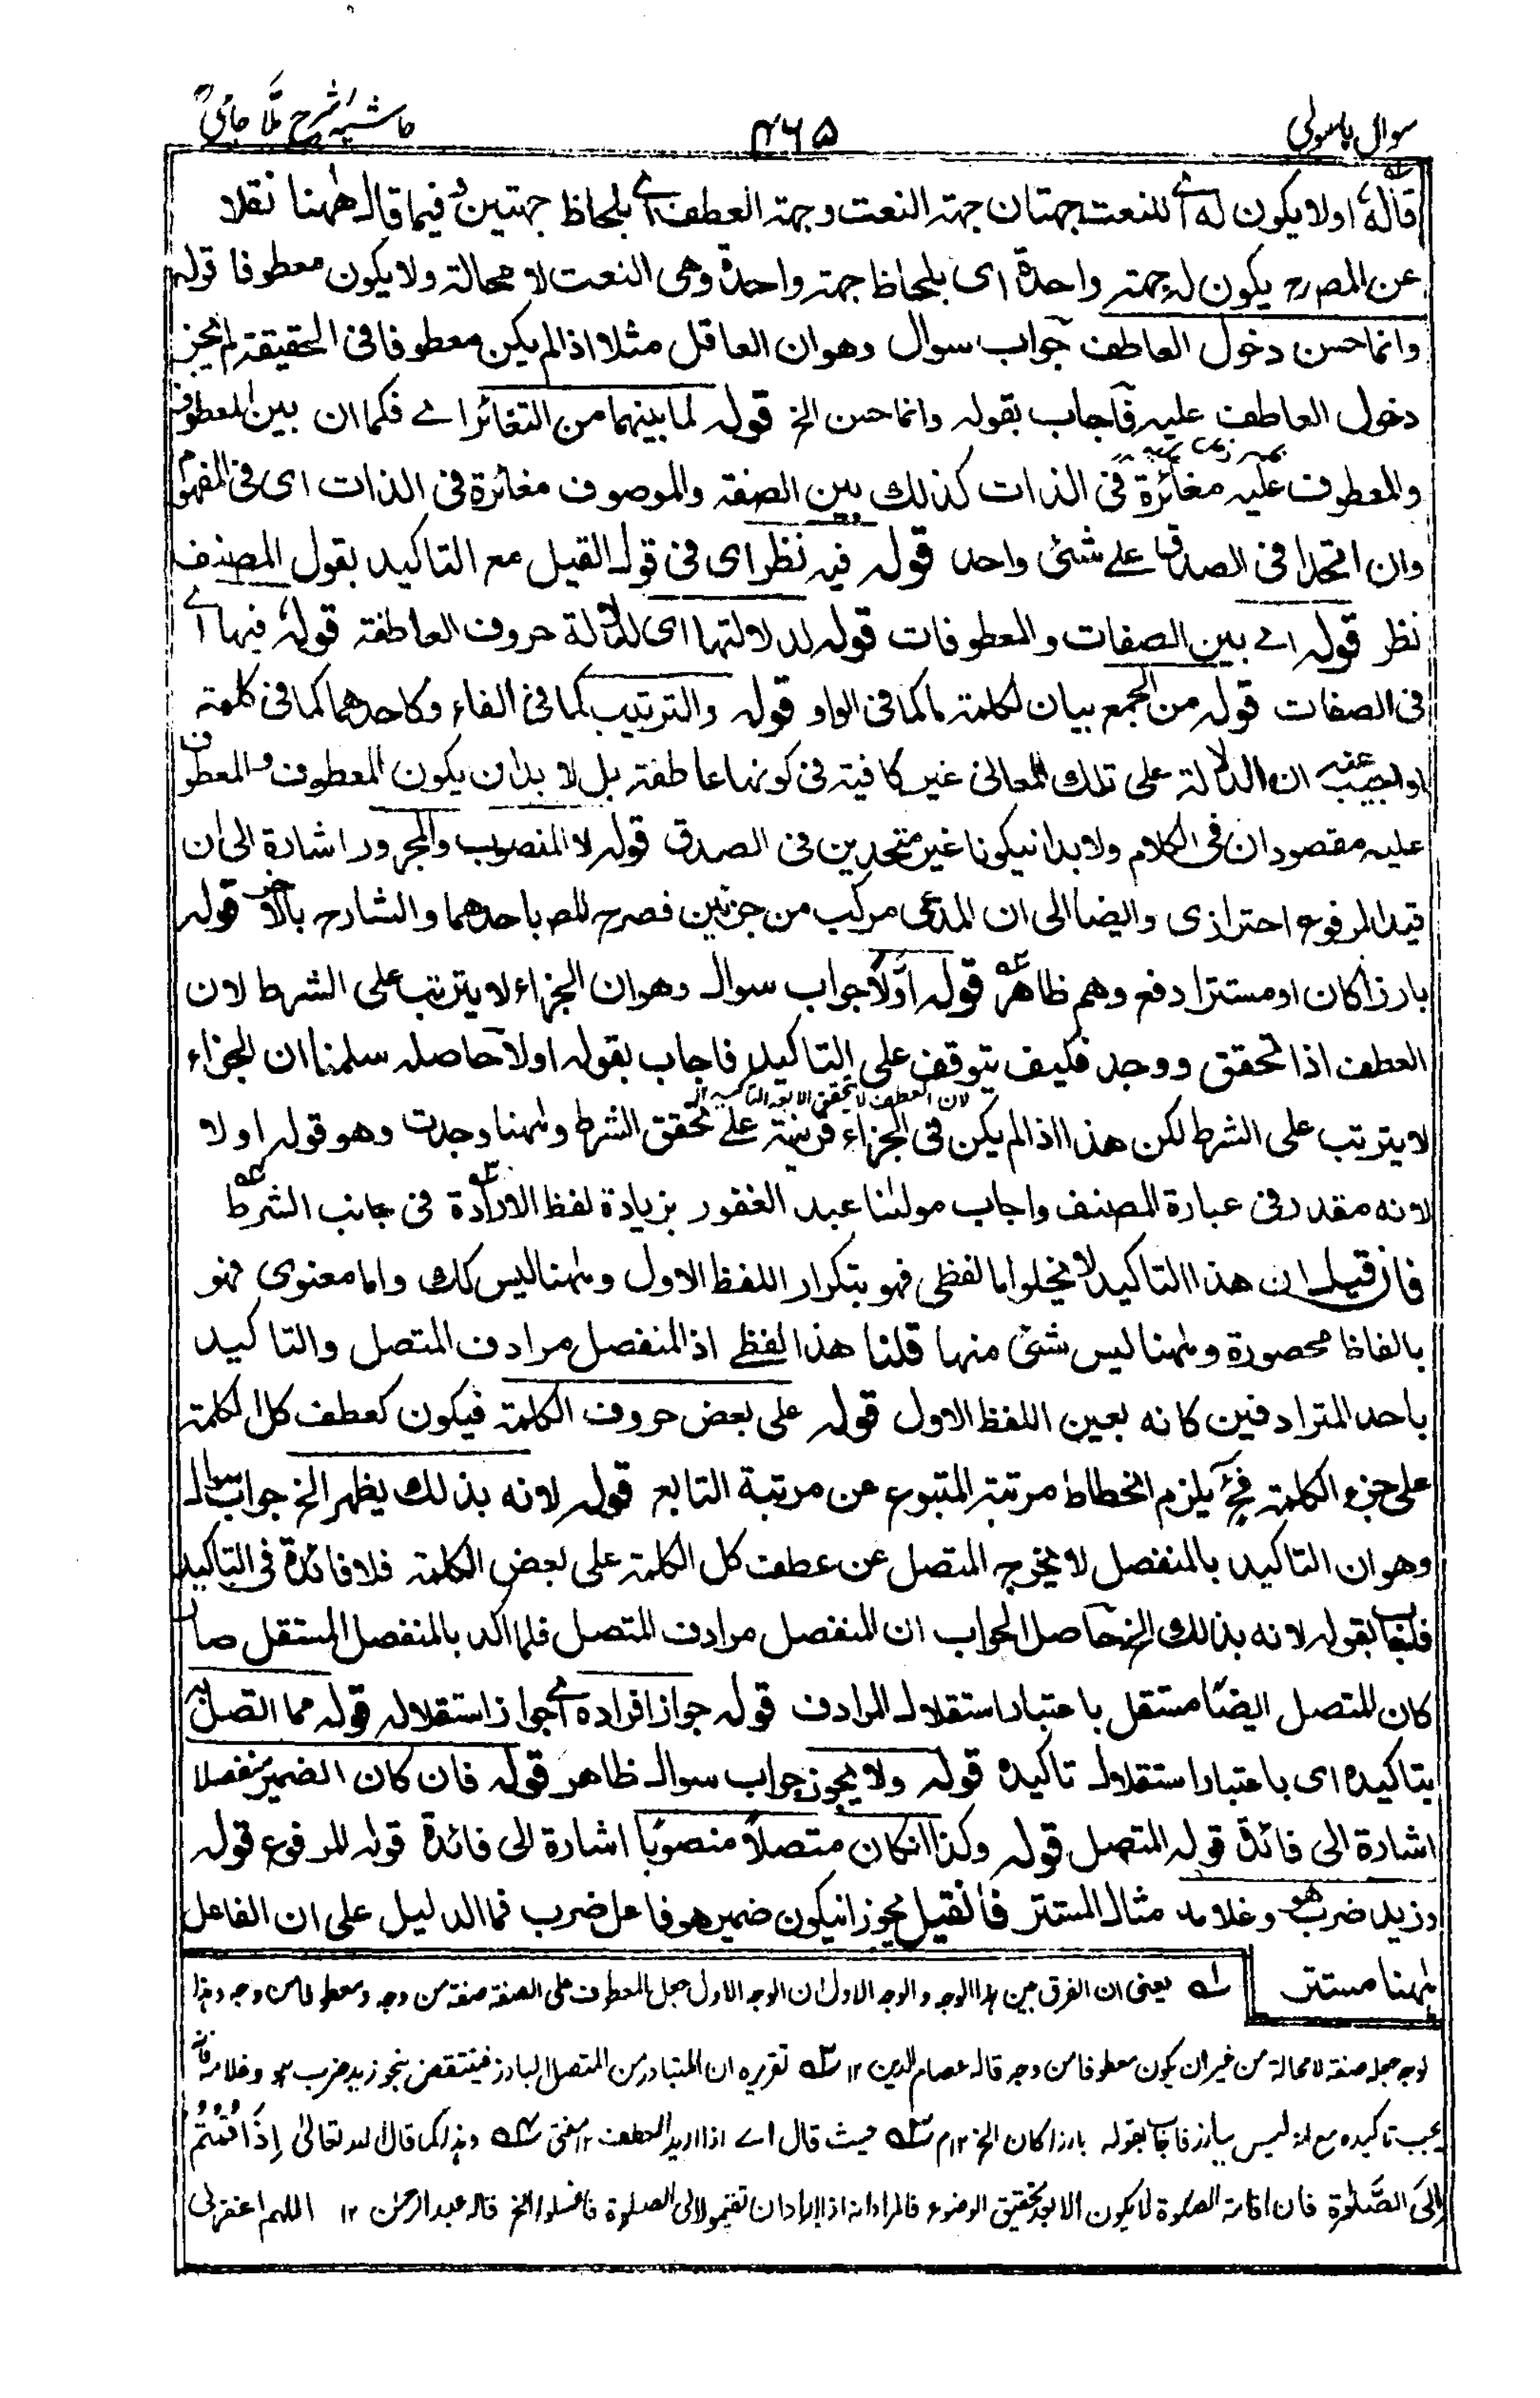 سوال باسولی ۴۶۵ حاشیہ شرح ملا جامیؒ
قالہ اولا یکون لہ اے للنعت جهتان جهتہ النعت وجهتہ العطف اے بلحاظ جهتین فیما قال ههنا نقلا
عن المصرح یکون لہ جهتہ واحدة ای بلحاظ جهتہ واحدة وهی النعت لا محالة ولا یکون معطوفا قولہ
وانما حسن دخول العاطف جواب سوال وهو ان العاقل مثلا اذا لم یکن معطوفا فی الحقیقتہ لم یجز
دخول العاطف علیہ فاجاب بقولہ وانما حسن الخ قولہ لما بینهما من التغائر اے فکما ان بین المعطوف
والمعطوف علیہ مغائرة فی الذات کذلك بین الصفتہ والموصوف مغائرة فی الذات ای فی المفهوم
وان اتحدا فی الصدق علے شئی واحد قولہ فیہ نظر ای فی قولہ القیل مع التاکید بقول المصنف
نظر قولہ اے بین الصفات والمعطوفات قولہ لدلالتها ای لدلالة حروف العاطفتہ قولہ فیها اے
فی الصفات قولہ من الجمع بیان لکلمتہ ما کما فی الواو قولہ والترتیب کما فی الفاء وکاحدهما کما فی کلمتہ
او اجیب عنہ ان الدلالة علی تلك المعانی غیر کافیتہ فی کونها عاطفتہ بل لا بد ان یکون المعطوف والمعطوف
علیہ مقصودان فی الکلام ولا بد انیکونا غیر متحدین فی الصدق قولہ لا المنصوب والمجرور اشارة الی ان
قید المرفوع احترازی وایضا الی ان المدعی مرکب من جزئین فصرح للمص باحدهما والشارح بالاخر قولہ
بارزا کان او مستترا دفع وهم ظاهر قولہ اولا جواب سوال وهو ان الجزاء لا یترتب علی الشرط لان
العطف اذا تحقق ووجد فکیف یتوقف علی التاکید فاجاب بقولہ اولا حاصلہ سلمنا ان الجزاء
لان العطف لا یتحقق الا بعد التاکید
لا یترتب علی الشرط لکن هذا اذا لم یکن فی الجزاء قرینتہ علے تحقق الشرط وههنا وجدت وهو قولہ اولا
لانه مقدر فی عبارة المصنف واجاب مولٰنا عبد الغفور بزیادة لفظ الارادة فی جانب الشرط
فان قیل ان هذا التاکید لا یخلوا اما لفظی فهو بتکرار اللفظ الاول وههنا لیس کك واما معنوی فهو
بالفاظ محصورة وههنا لیس شئی منها قلنا هذا لفظے اذ المنفصل مرادف المتصل والتاکید
باحد المترادفین کانه بعین اللفظ الاول قولہ علی بعض حروف الکلمتہ فیکون کعطف کل الکلمتہ
علی جزء الکلمتہ فح یلزم انحطاط مرتبتہ المتبوع عن مرتبة التابع قولہ لانه بذلك یظهر الخ جواب سوال
وهو ان التاکید بالمنفصل لا یخرج المتصل عن عطف کل الکلمتہ علی بعض الکلمتہ فلا فائدة فی التاکید
فاجاب بقولہ لانه بذالك الخ حاصل الجواب ان المنفصل مرادف المتصل فلما اکد بالمنفصل المستقل صار
کان المتصل ایضا مستقل باعتبار استقلال المرادف قولہ جواز افرادہ اے جواز استقلالہ قولہ مما اتصل بہ
بتاکیدہ ای باعتبار استقلال تاکیدہ قولہ ولا یجوز جواب سوال ظاهر قولہ فان کان الضمیر منفصلا
اشارة الی فائدة قولہ المتصل قولہ وکذا انکان متصلاً منصوبًا اشارة الی فائدة قولہ المرفوع قولہ
وزید ضرب هو وغلامہ مثال المستتر فانقیل یجوز انیکون ضمیر هو فاعل ضرب فما الدلیل علی ان الفاعل
ههنا مستتر
یعنی ان الفرق بین هذا الوجہ والوجہ الاول ان الوجہ الاول جعل المعطوف علی الصفتہ صفتہ من وجہ ومعطوفا من وجہ وهذا
لوجہ جعلہ صفتہ لا محالة من غیر ان یکون معطوفا من وجہ قالہ عصام الدین ۱۲ تقریرہ ان المتبادر من المتصل البارز فینتقض بنحو زید ضرب هو وغلامہ فانہ
یجب تاکیدہ مع انہ لیس ببارز فاجاب بقولہ بارزا کان الخ ۱۲م حیث قال اے اذا ارید العطف ۱۲ مفتی وهذا کما قال اللہ تعالیٰ اِذَا قُمْتُمْ
اِلَی الصَّلٰوةِ فان اقامتہ الصلوة لا یکون الا بعد تحقیق الوضوء فالمراد انہ اذا اردتم ان تقیموا الی الصلوة فاغسلوا الخ قالہ عبد الرحمٰن ۱۲ اللهم اغفر لی